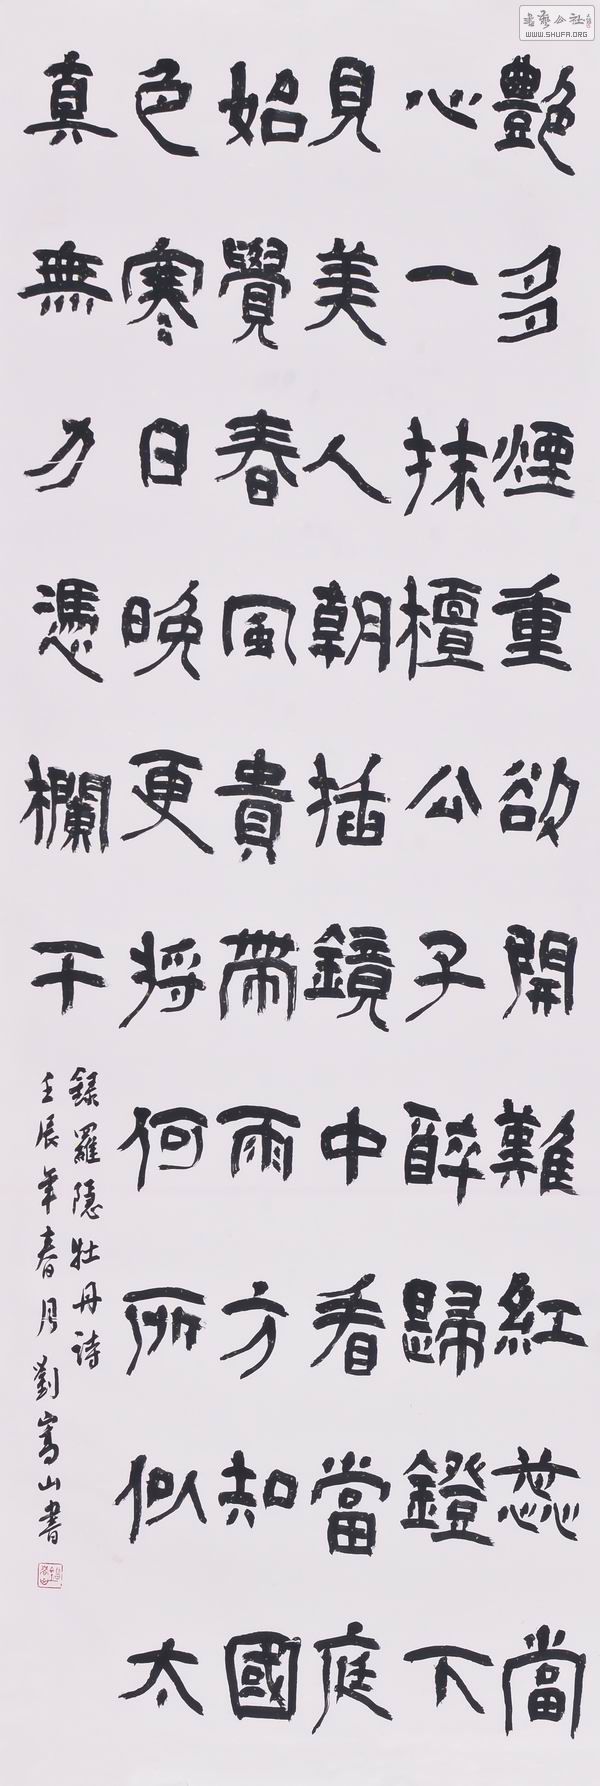 艷多煙重欲開難紅蕊當
心一抹檀公子醉歸鐙下
見美人朝插鏡中看當庭
始覺春風貴帶雨方知國
色寒日晚更將何所似太
真無力憑欄干
錄羅隱牡丹詩
壬辰年春月劉嵩山書
書藝公社
WWW.SHUFA.ORG